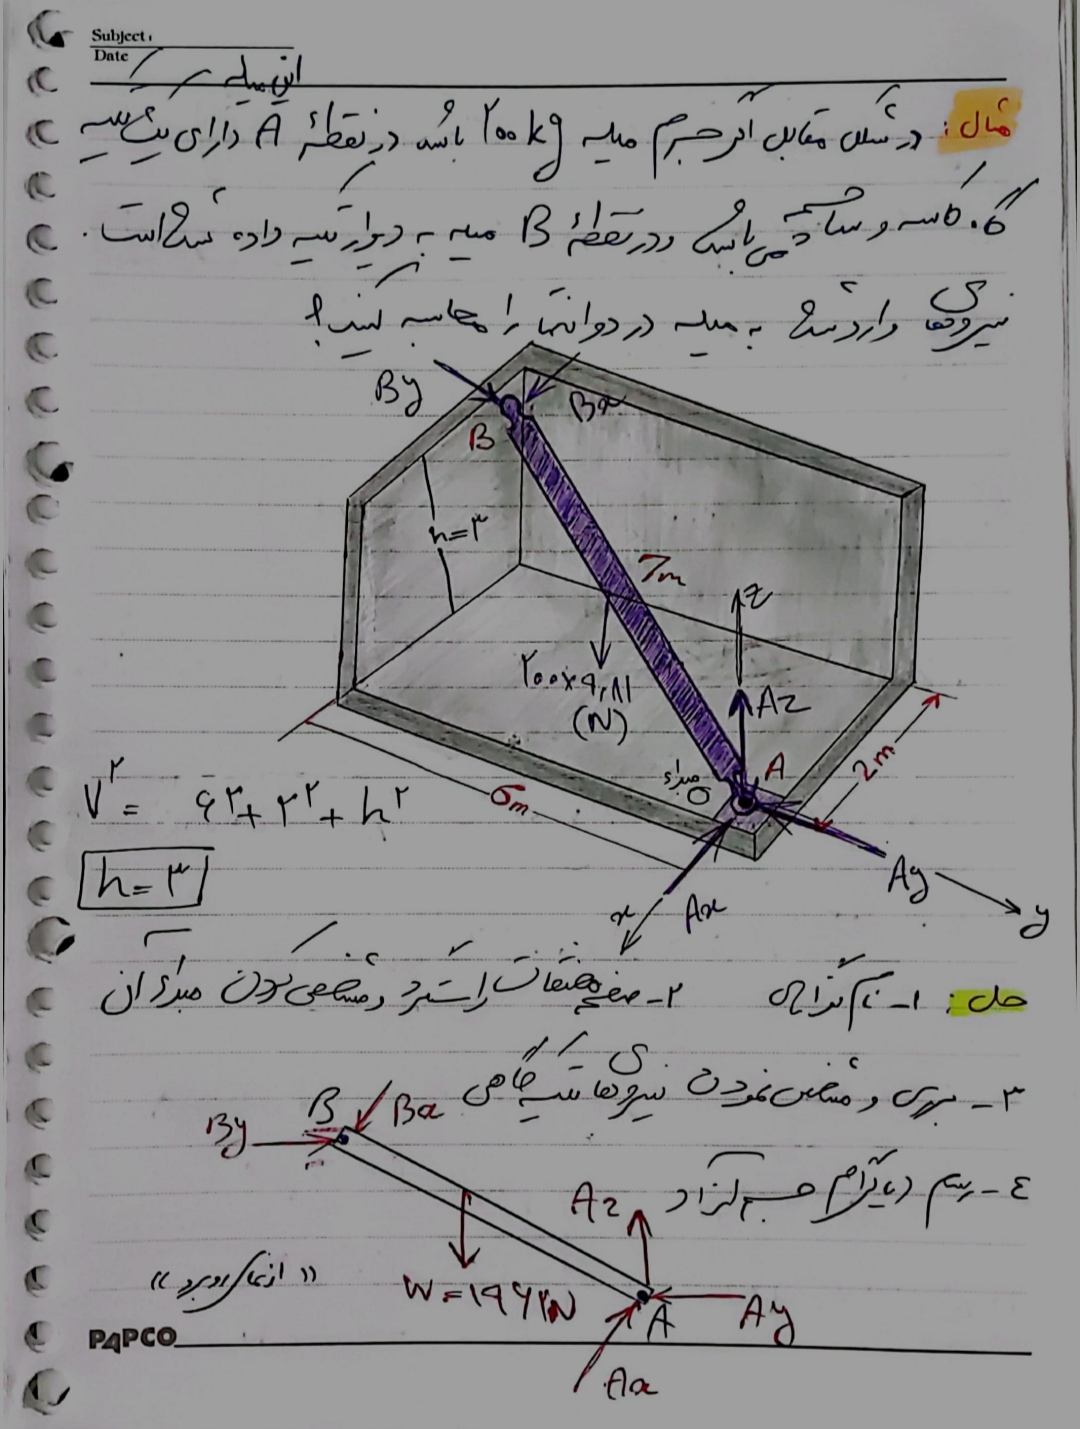 Subject:
Date
این میله
مثال: در شکل مقابل اگر جرم میله ۲۰۰kg باشد در نقطهٔ A دارای تکیه
گاه کاسه و ساچمه می باشد و در نقطهٔ B میله به دیوار تکیه داده شده است.
نیروهای وارد شده به میله در دو انتها را محاسبه کنید؟
By
Bx
B
h=۳
7m
z
۲۰۰×۹,۸۱
(N)
Az
A
مبداء
O
2m
6m
۷۲ = ۶۲+۲۲+h۲
h=۳
Ay
y
Ax
x
حل: ۱- نام گذاری ۲- صفحه مختصات راستگرد و مشخص کردن مبداء آن
۳- بررسی و مشخص نمودن نیروهای تکیه گاهی
B Bx
By
٤- رسم دیاگرام جسم آزاد
Az
"از نمای روبرو"
W=۱۹۶۲N
A
Ay
PAPCO
Ax